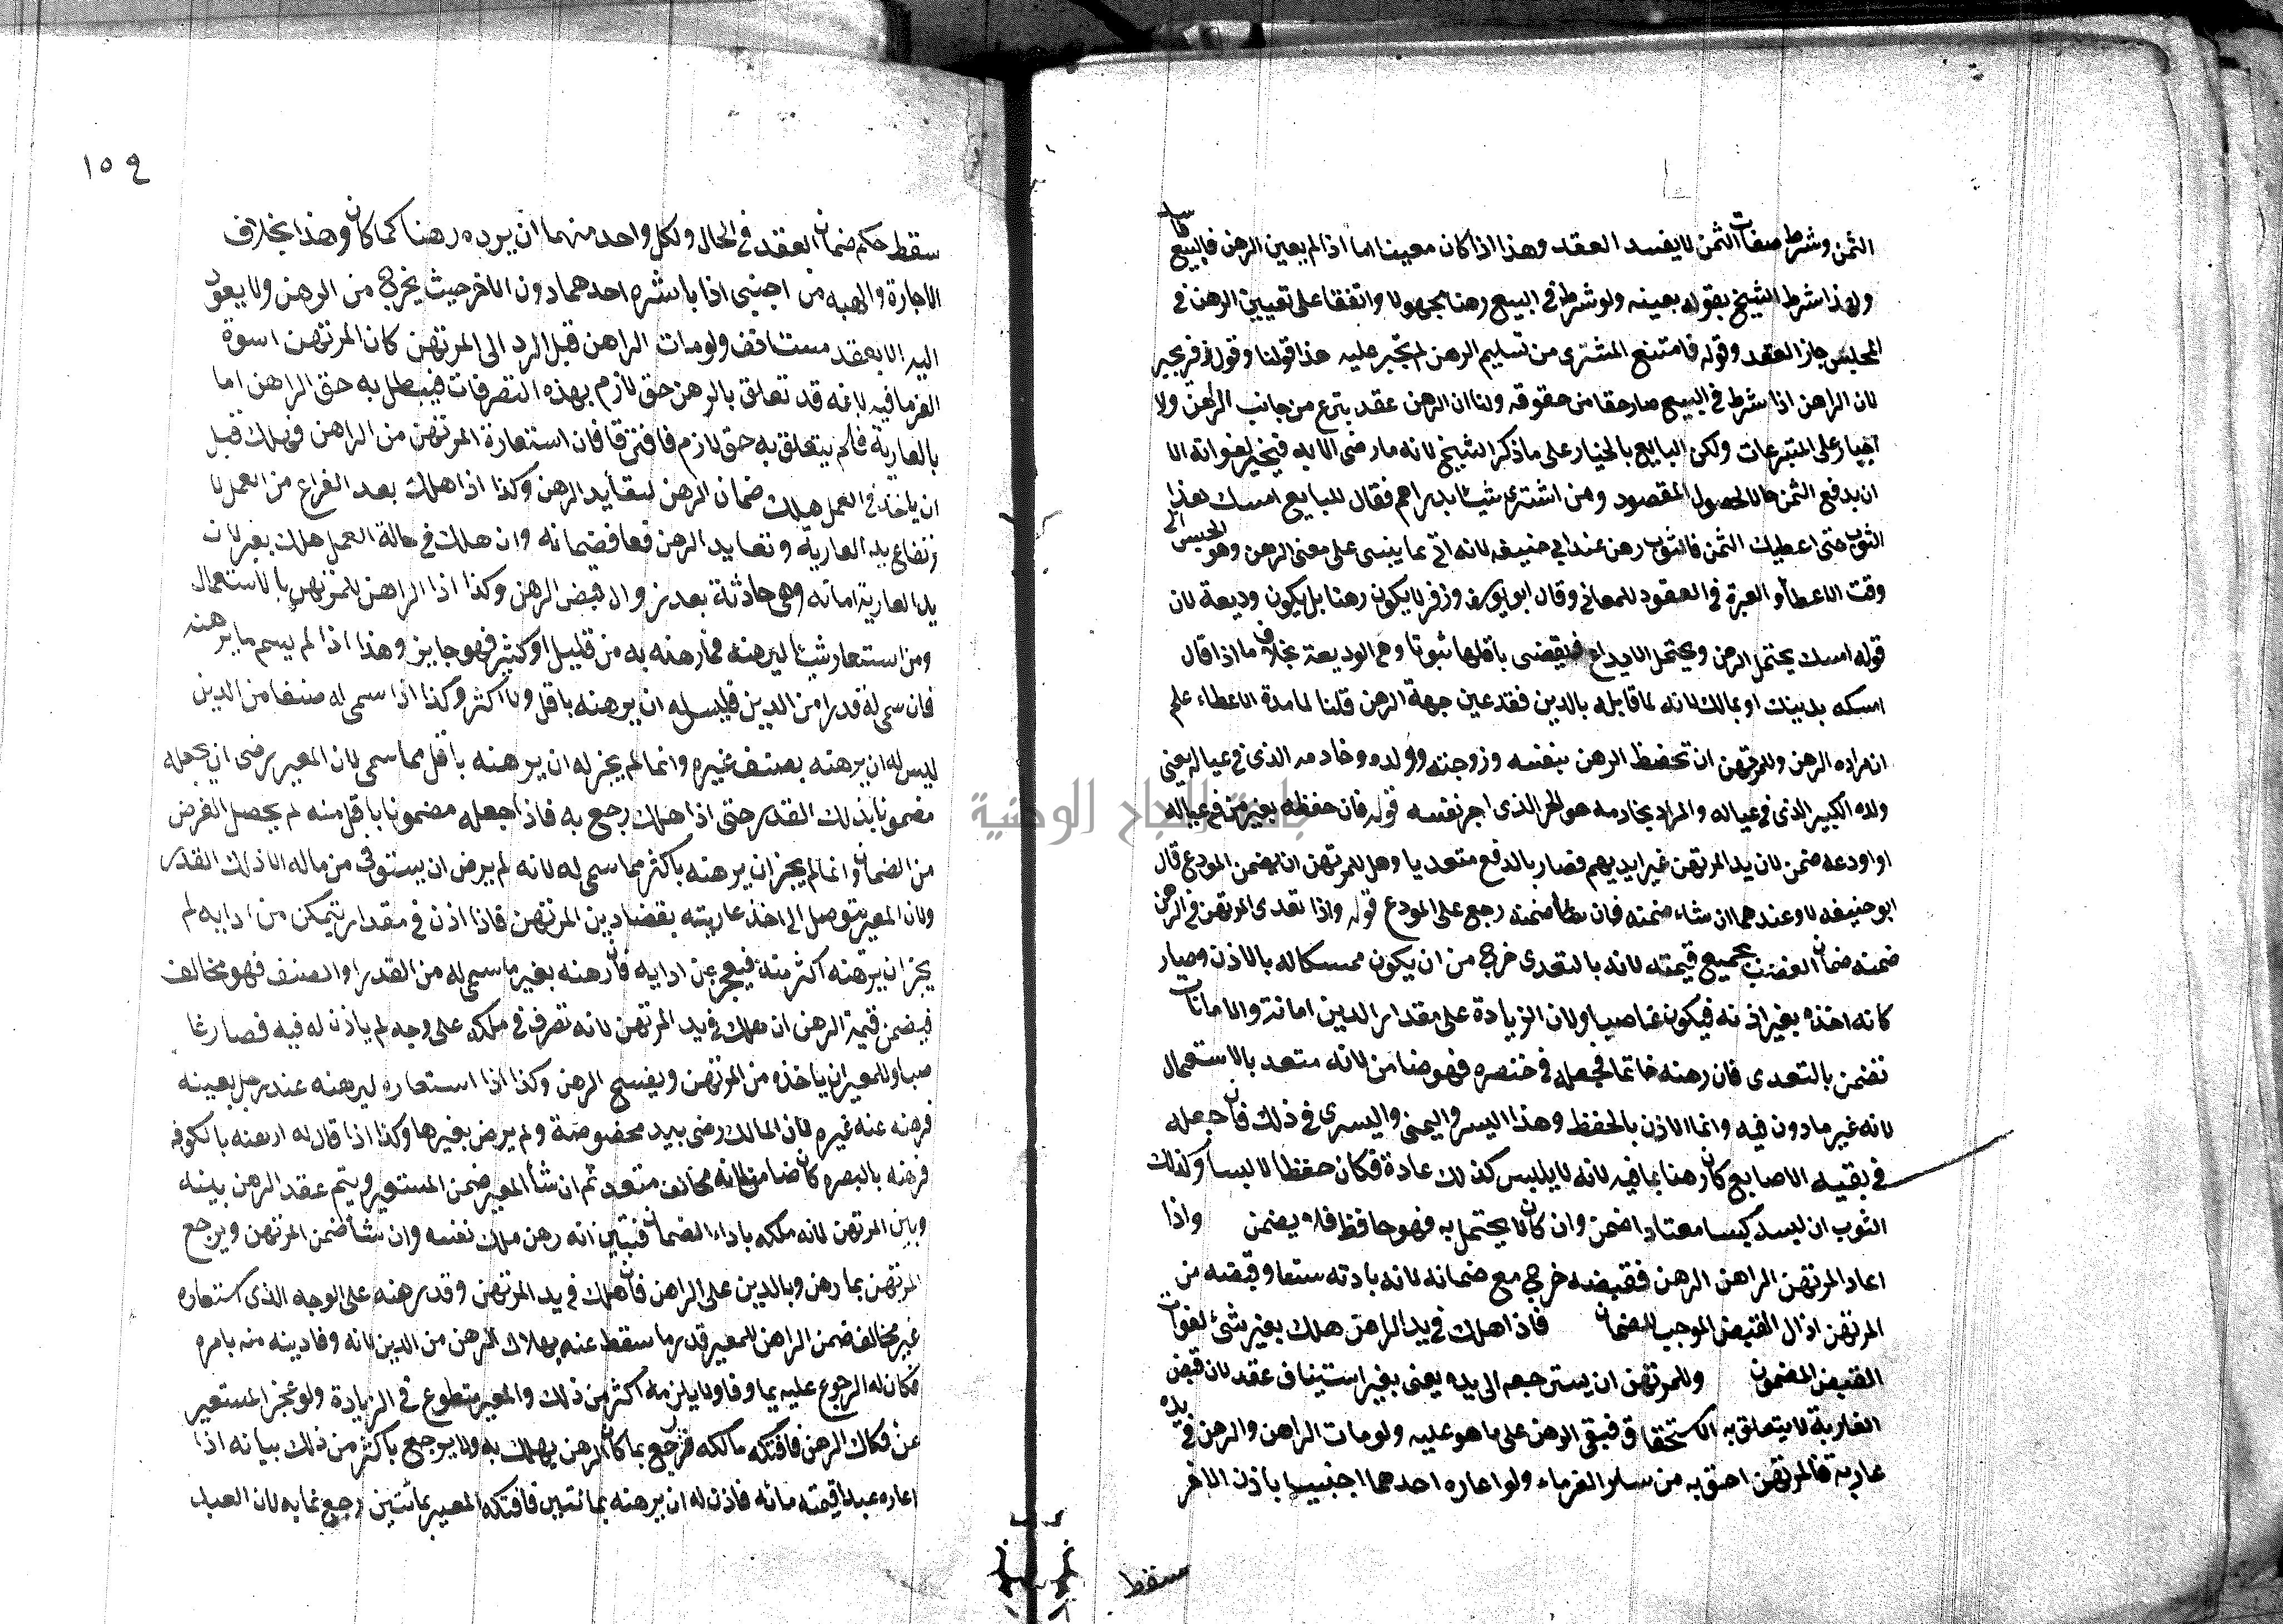 الثمن وشرط صفات الثمن لا يفسد العقد وهذا اذا كان معينا اما اذا لم يعين الرهن فالبيع فا سد
ولهذا شرط الشيخ بقوله بعينه ولو شرط في البيع رهنا مجهولا واتفقا على تعيين الرهن في
المجلس جاز العقد وقوله فامتنع المشترى من تسليم الرهن لم يجبر عليه هذا قولنا وقول زفر يجبر
لان الراهن اذا شرط في البيع صار حقا من حقوقه ولنا ان الرهن عقد تبرع من جانب الراهن ولا
اجبار على المتبرعات ولكن البايع بالخيار على ما ذكر الشيخ لانه ما رضى الا به فيخير لفواته الا
ان يدفع الثمن حالا لحصول المقصود ومن اشترى شيئا بدراهم فقال للبايع امسك هذا
الثوب حتى اعطيك الثمن فالثوب رهن عند ابي حنيفه لانه اتى بما ينبى على معنى الرهن وهو الحبس الى
وقت الاعطاء والعبرة في العقود للمعاني وقال ابو يوسف وزفر لا يكون رهنا بل يكون وديعة لان
قوله امسك يحتمل الرهن ويحتمل الايداع فيقضى باقلهما ثبوتا وهي الوديعة بخلاف ما اذا قال
امسكه بدينك او بمالك لانه لما قابله بالدين فقد عين جهة الرهن قلنا لما مدة الاعطاء علم
ان مراده الرهن وللمرتهن ان يحفظ الرهن بنفسه وزوجته وولده وخادمه الذى في عياله يعنى
ولده الكبير الذى في عياله والمراد بخادمه هو الحر الذى اجر نفسه قوله فان حفظه بغير من في عياله
او اودعه ضمن لان يد المرتهن غير ايديهم فصار بالدفع متعديا وهل للمرتهن ان يضمن المودع قال
ابو حنيفه لا وعندهما ان شاء ضمنه فان ضمنه رجع على المودع قوله واذا تعدى المرتهن في الرهن
ضمنه ضمان الغصب بجميع قيمته لانه بالتعدى خرج من ان يكون ممسكا له بالاذن وصار
كانه اخذه بغير اذنه فيكون غاصبا ولان الزيادة على مقدار الدين امانة والامانات
تضمن بالتعدى فان رهنه خاتما فجعله في خنصره فهو ضامن لانه متعد بالاستعمال
لانه غير مادون فيه وانما الاذن بالحفظ وهذا اليسر واليمنى واليسرى في ذلك فان جعله
في بقيه الاصابع كان رهنا بما فيه لانه لا يلبس كذلك عادة فكان حفظا لا لبسا وكذلك
الثوب ان لبسه لبسا معتادا ضمن وان كان لا يحتمل به فهو حافظ فلا يضمن واذا
اعاد المرتهن الراهن الرهن فقبضه خرج مع ضمانه لانه باذنه وقبضه من
المرتهن ازال القبض الموجب للضمان فاذا هلك في يد الراهن هلك بغير شئ لفوات
القبض المضمون وللمرتهن ان يسترجعه الى يده يعنى بغير استيناف عقد لان قبض
العارية لا يتعلق به الاستحقاق فبقى الرهن على ما هو عليه ولو مات الراهن والرهن في يده
عارية فالمرتهن احق به من سائر الغرماء ولو اعاره احدهما اجنبيا باذن الاخر
سقط
١٥٩
سقط حكم ضمان العقد في الحال ولكل واحد منهما ان يرده رهنا كما كان وهذا بخلاف
الاجارة والهبه من اجنبي اذا باشره احدهما دون الاخر حيث يخرج من الرهن ولا يعود
اليه الا بعقد مستانف ولو مات الراهن قبل الرد الى المرتهن كان المرتهن اسوة
الغرما فيه لانه قد تعلق بالرهن حق لازم بهذه التصرفات فيبطل به حق الراهن اما
بالعارية فلم يتعلق به حق لازم فافترقا فان استعارة المرتهن من الراهن فهلك قبل
ان ياخذ في العمل هلك ضمان الرهن لبقا يد الرهن وكذا اذا هلك بعد الفراغ من العمل لا
رتفاع يد العارية وتعا يد الرهن فضمانه وان هلك في حالة العمل هلك بغير لان
يد العارية امانة وهي حادثة بعد زوال قبض الرهن وكذا اذا الراهن للمرتهن بالاستعمال
ومن استعار شيئا ليرهنه فما رهنه به من قليل او كثير فهو جايز وهذا اذا لم يسم ما يرهنه
فان سمى له قدرا من الدين فليس له ان يرهنه باقل ولا اكثر وكذا اذا سمى له صنفا من الدين
ليس له ان يرهنه بصنف غيره وانما لم يجز له ان يرهنه باقل مما سمى لان المعير رضى ان يجعله
مضمونا بذلك القدر حتى اذا هلك رجع به فاذا جعله مضمونا باقل منه لم يحصل الغرض
من الضمان وانما لم يجز ان يرهنه باكثر مما سمى له لانه لم يرض ان يستوفى من ماله الا ذلك القدر
ولان المعير يتوصل الى اخذ عاريته بقضا دين المرتهن فاذا اذن في مقدار يتمكن من ادايه لم
يجز ان يرهنه اكثر منه فيعجز عن ادايه فان رهنه بغير ما سمى له من القدر او الصنف فهو مخالف
فيضمن قيمة الرهن ان هلك في يد المرتهن لانه تصرف في ملكه على وجه لم ياذن له فيه فصار غا
صبا وللمعير ان ياخذه من المرتهن ويفسخ الرهن وكذا اذا استعاره ليرهنه عند رجل بعينه
فرهنه عنه غيره لان المالك رضى بيد مخصوصة ولم يرض بغيرها وكذا اذا قال له ارهنه بالكوفه
فرهنه بالبصره كان ضامنا لانه مخالف متعد ثم ان شأ المعير ضمن المستعير ويتم عقد الرهن بينه
وبين المرتهن لانه ملكه باداء الضمان فتبين انه رهن ملك نفسه وان شأ ضمن المرتهن ويرجع
المرتهن بما رهن وبالدين على الراهن فان هلك في يد المرتهن وقد رهنه على الوجه الذى استعاره
غير مخالف ضمن الراهن للمعير قدر ما سقط عنه بهلاك الرهن من الدين لانه وفا دينه منه بامره
فكان له الرجوع عليه بما وفا ولا يلزمه اكثر من ذلك والمعير متطوع في الزيادة ولو عجز المستعير
عن فكاك الرهن فافتكه مالكه فرجع بما كان الرهن يهلك به ولا يرجع باكثر من ذلك بيانه اذا
اعاره عبدا قيمته مائه فاذن له ان يرهنه بمائتين فافتكه المعير بمائتين رجع بمايه لان العبد